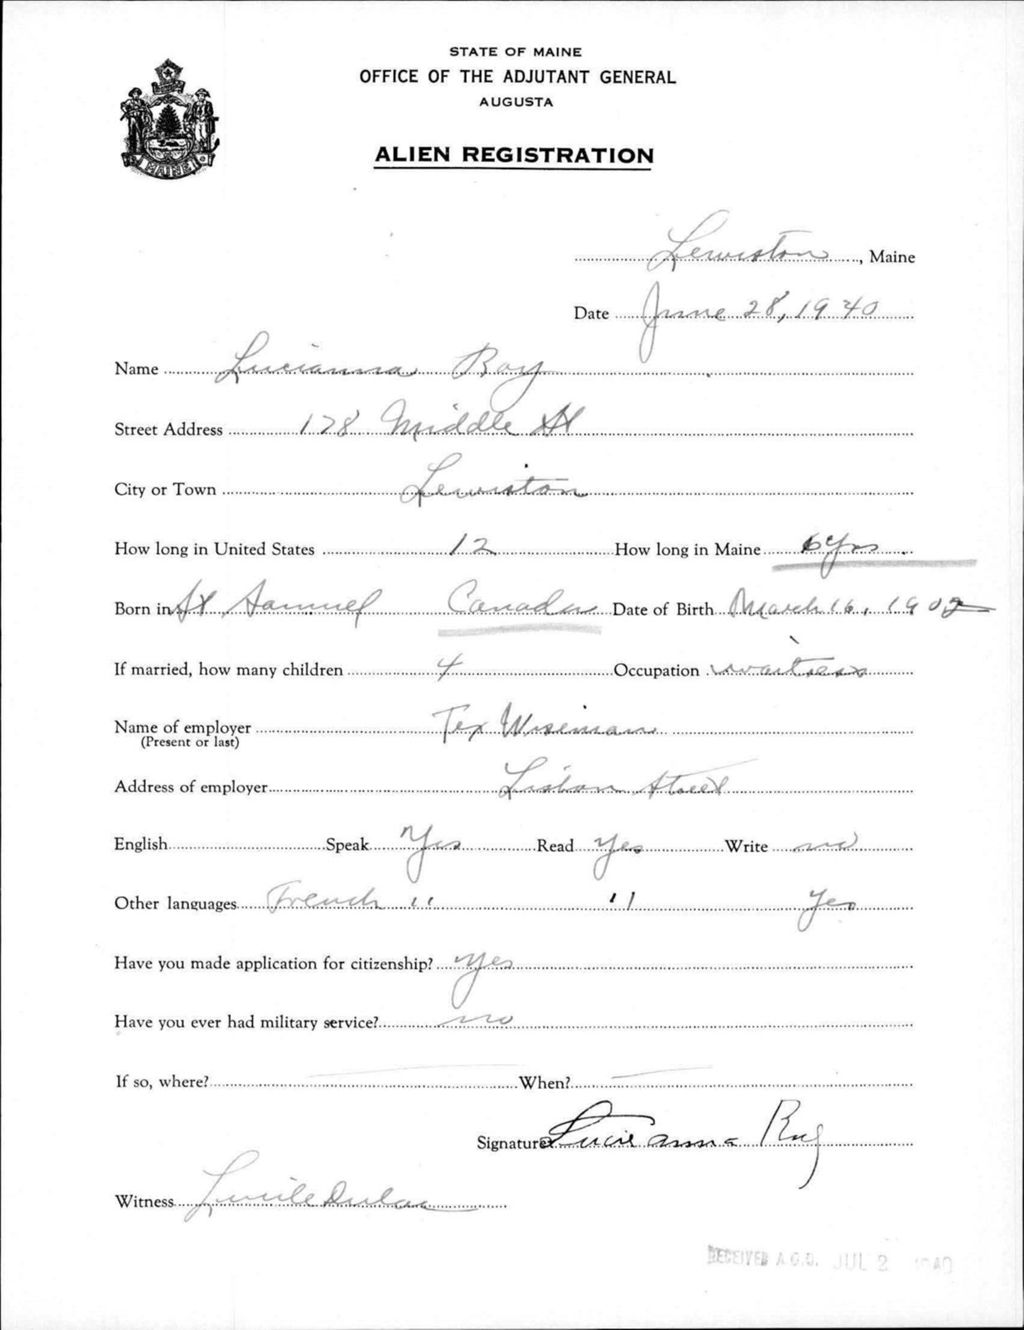 STATE OF MAINE
OFFICE OF THE ADJUTANT GENERAL
AUGUSTA
ALIEN REGISTRATION
MAINE
Lewiston, Maine
Date June 28, 1940
Name Lucianna Roy
Street Address 178 Middle St
City or Town Lewiston
How long in United States 12 How long in Maine 6 Yrs
Born in St Samuel Canada Date of Birth March 16, 1902
If married, how many children 4 Occupation waitress
Name of employer Tex Wiseman
(Present or last)
Address of employer Lisbon Street
English Speak Yes Read Yes Write no
Other languages French " " Yes
Have you made application for citizenship? Yes
Have you ever had military service? no
If so, where? When?
Signature Lucieanna Roy
Witness Lucile Dulac
RECEIVED A.G.O. JUL 2 1940